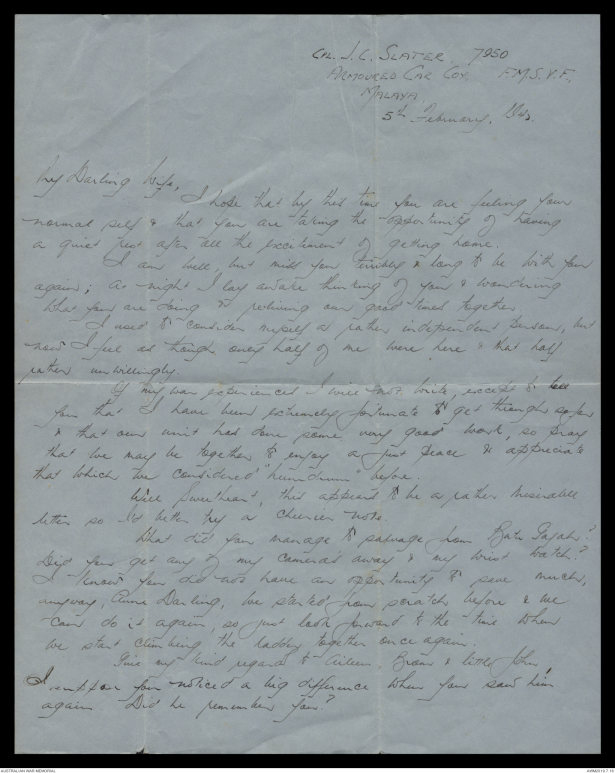 CPL. J. C. SLATER 7950
ARMOURED CAR COY F.M.S.V.F.,
MALAYA
5th February, 1942.
My Darling Wife,
I hope that by this time you are feeling your
normal self & that you are taking the opportunity of having
a quiet rest after all the excitement of getting home.
I am well, but miss you terribly & long to be with you
again; at night I lay awake thinking of you & wondering
what you are doing & reliving our good times together.
I used to consider myself a rather independent person, but
now I feel as though only half of me were here & that half
rather unwillingly.
Of my war experiences I will not write, except to tell
you that I have been extremely fortunate to get through so far
& that our unit has done some very good work, so pray
that we may be together to enjoy a just peace & appreciate
that which we considered "humdrum" before.
Well Sweetheart, this appears to be a rather miserable
letter so I'd better try a cheerier note.
What did you manage to salvage from Batu Gajah?
Did you get any of my cameras away & my wrist watch?
I know you did not have an opportunity to save much,
anyway, Anne Darling, we started from scratch before & we
can do it again so just look forward to the time when
we start climbing the ladder together once again.
Give my kind regards to Aileen, Brian & little John,
I suppose you noticed a big difference when you saw him
again. Did he remember you?
AUSTRALIAN WAR MEMORIAL